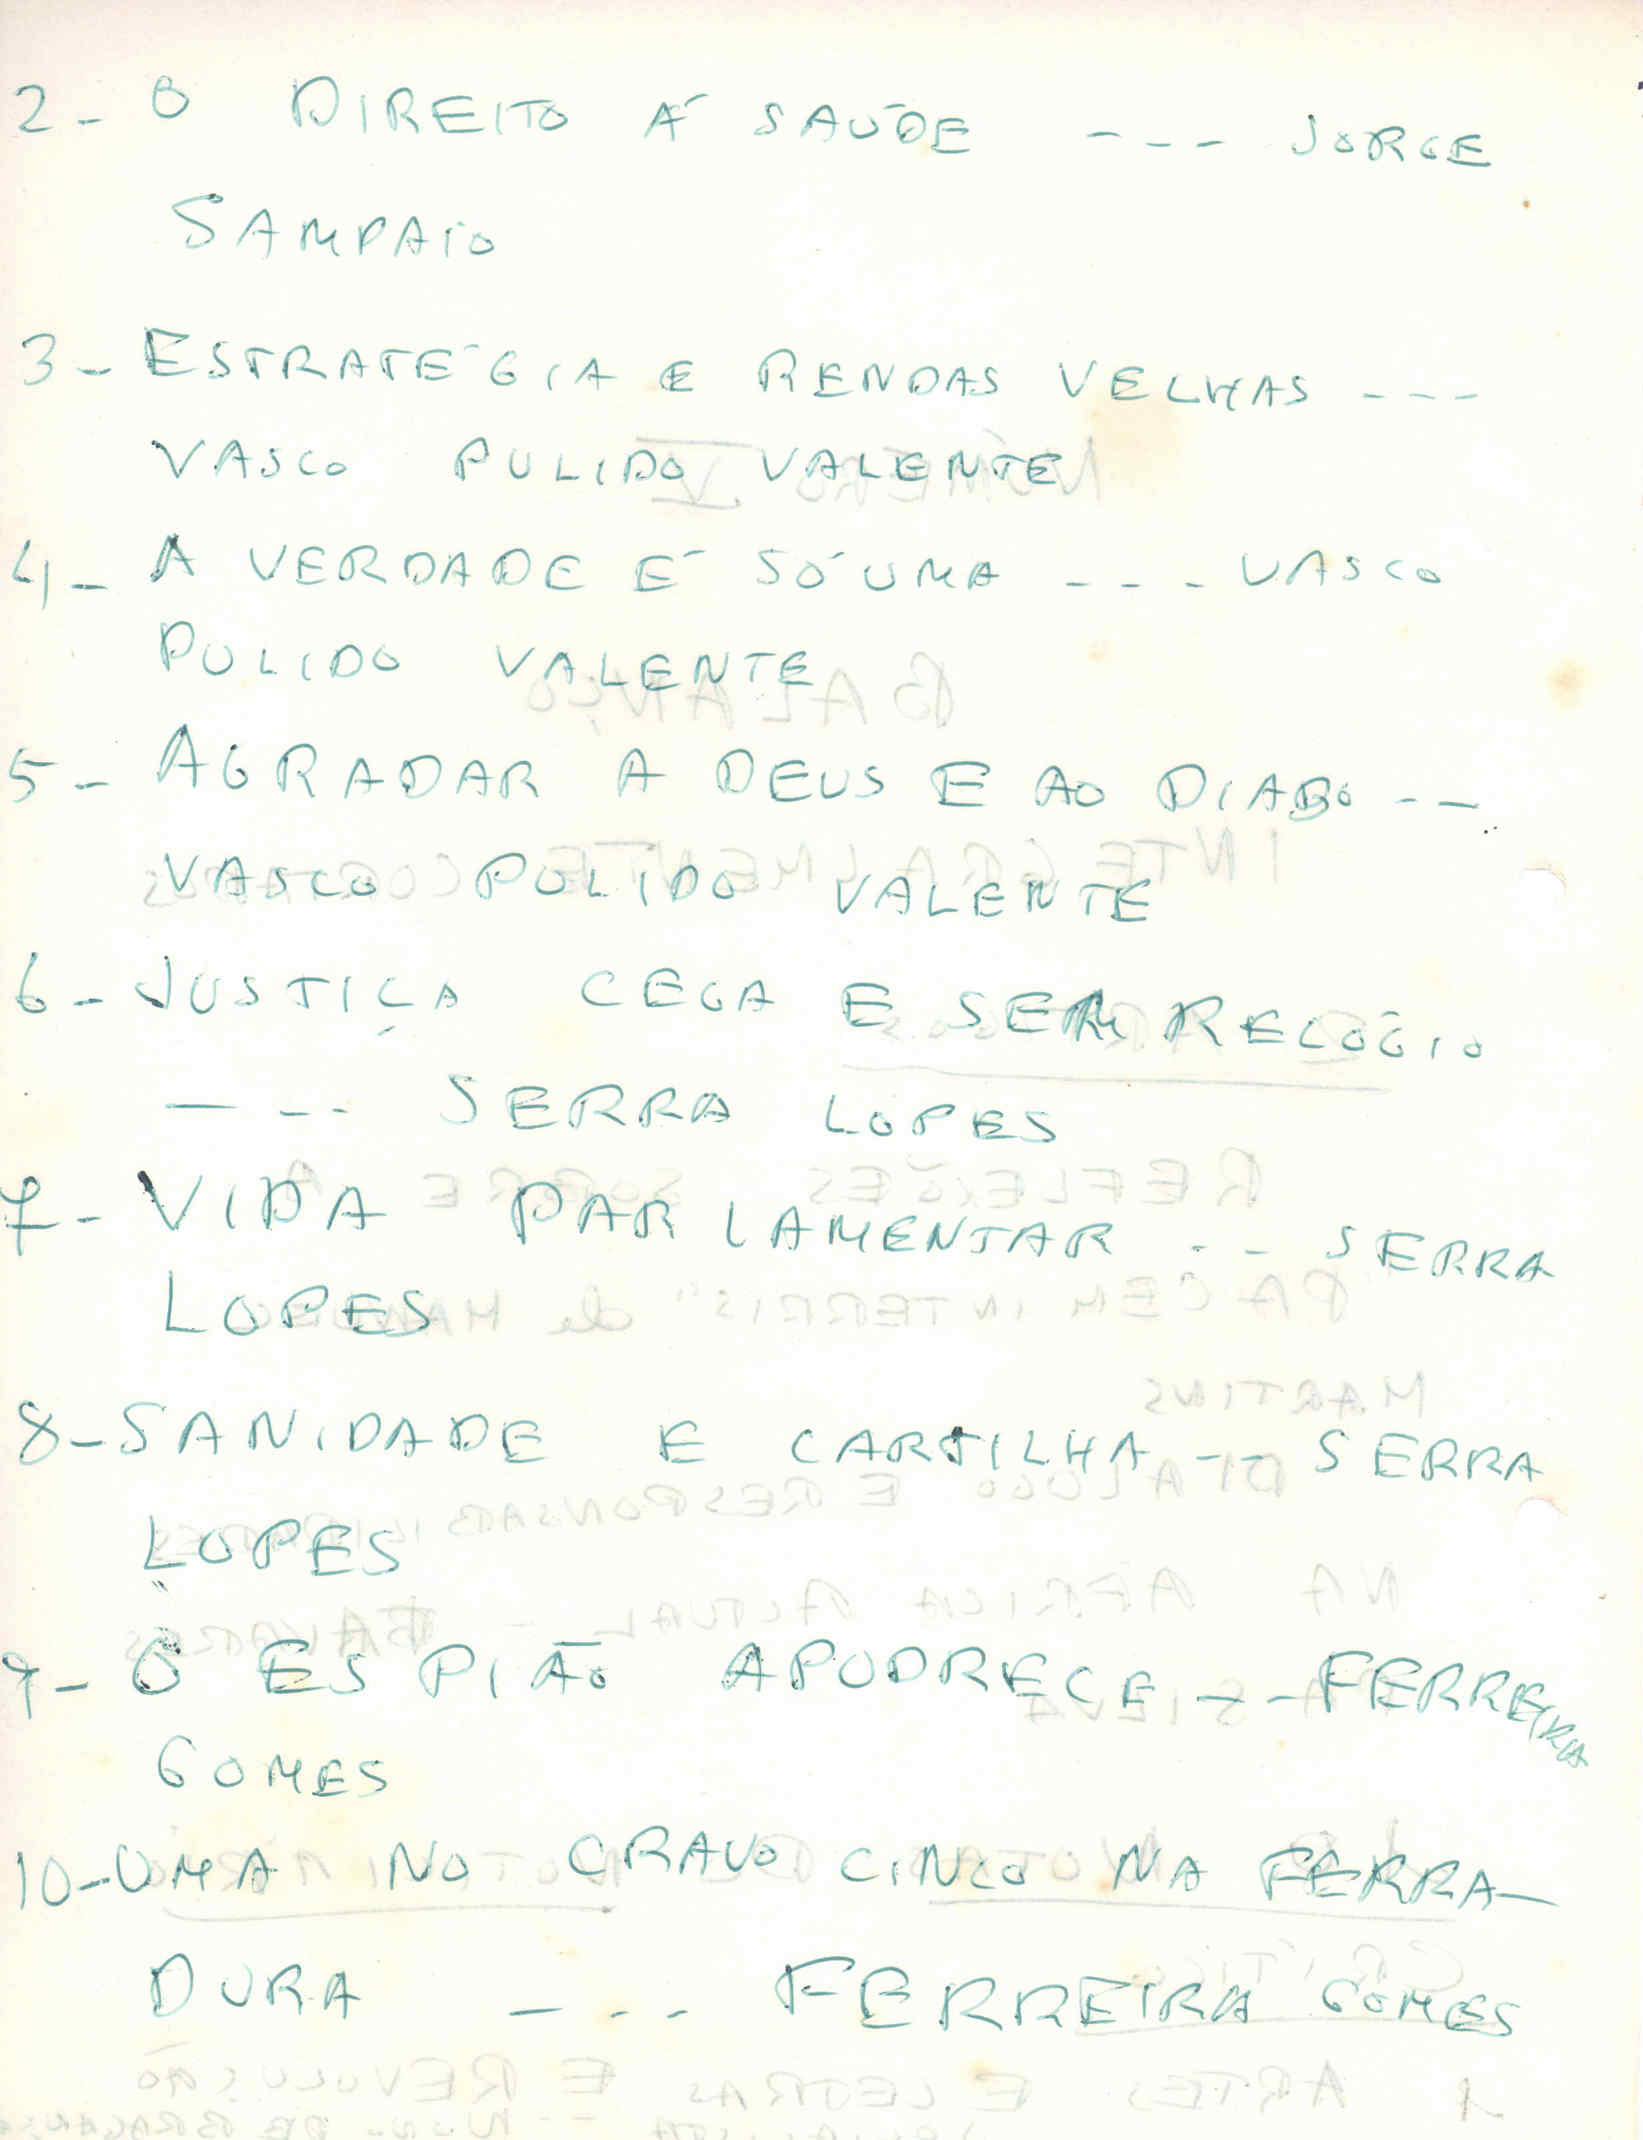 2 - O DIREITO Á SAÚDE --- JORGE
SAMPAIO
3 - ESTRATÉGIA E RENDAS VELHAS ---
VASCO PULIDO VALENTE
4 - A VERDADE É SÓ UMA --- VASCO
PULIDO VALENTE
5 - AGRADAR A DEUS E AO DIABO --
VASCO PULIDO VALENTE
6 - JUSTIÇA CEGA E SEM RELÓGIO
--- SERRA LOPES
7 - VIDA PARLAMENTAR -- SERRA
LOPES
8 - SANIDADE E CARTILHA -- SERRA
LOPES
9 - O ESPIÃO APODRECE -- FERREIRA
GOMES
10 - UMA NO CRAVO CINCO NA FERRA-
DURA --- FERREIRA GOMES